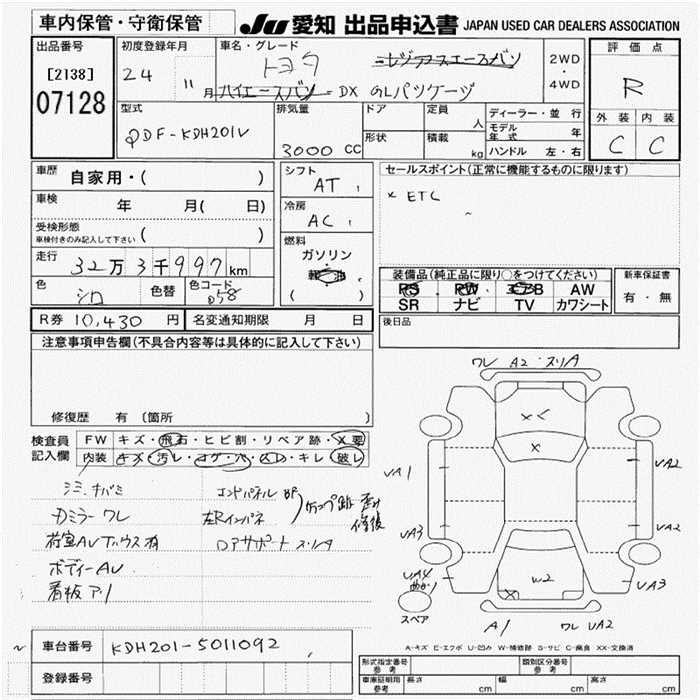 車内保管・守衛保管
JU 愛知 出品申込書 JAPAN USED CAR DEALERS ASSOCIATION
出品番号
[2138]
07128
初度登録年月
24
11月
車名・グレード
トヨタ
ハイエースバン DX GLパッケージ
2WD
・
4WD
評価点
R
外装 内装
C C
型式
QDF-KDH201V
排気量
3000 CC
ドア
形状
定員
人
積載
kg
ディーラー・並行
モデル年式 年
ハンドル 左・右
車歴
自家用・( )
車検
年 月( 日)
受検形態
車検付きのみ記入して下さい ( )
走行
32万3千997km
色
シロ
色替
色コード
058
シフト
AT
冷房
AC
燃料
ガソリン
軽油
( )
セールスポイント(正常に機能するものに限ります)
× ETC
装備品(純正品に限り○をつけてください)
PS PW エアB AW
SR ナビ TV カワシート
新車保証書
有・無
R券 10,430 円
名変通知期限 月 日
後日品
注意事項申告欄(不具合内容等は具体的に記入して下さい)
修復歴 有 〔箇所 〕
検査員記入欄
FW キズ・飛石・ヒビ割・リペア跡・X要
内装 キズ・汚レ・コゲ・穴・スレ・キレ・破レ
カミラー ワレ
荷室AVナットハウス有
ボディーAV
看板アリ
エンドパネル BP
左Rインパネ
ロアサポート ズリA
ワレ A2・ズリA
×<
×
VA1
VA2
VA3
VA2
VA4
VA3
W2
×
スペア
A1
ワレ VA2
A-キズ E-エクボ U-凹み W-補修跡 S-サビ C-腐食 XX-交換済
車台番号
KDH201-5011092
登録番号
形式指定番号
参考
類別区分番号
参考
車庫証明用
参考
長さ cm
幅 cm
高さ cm